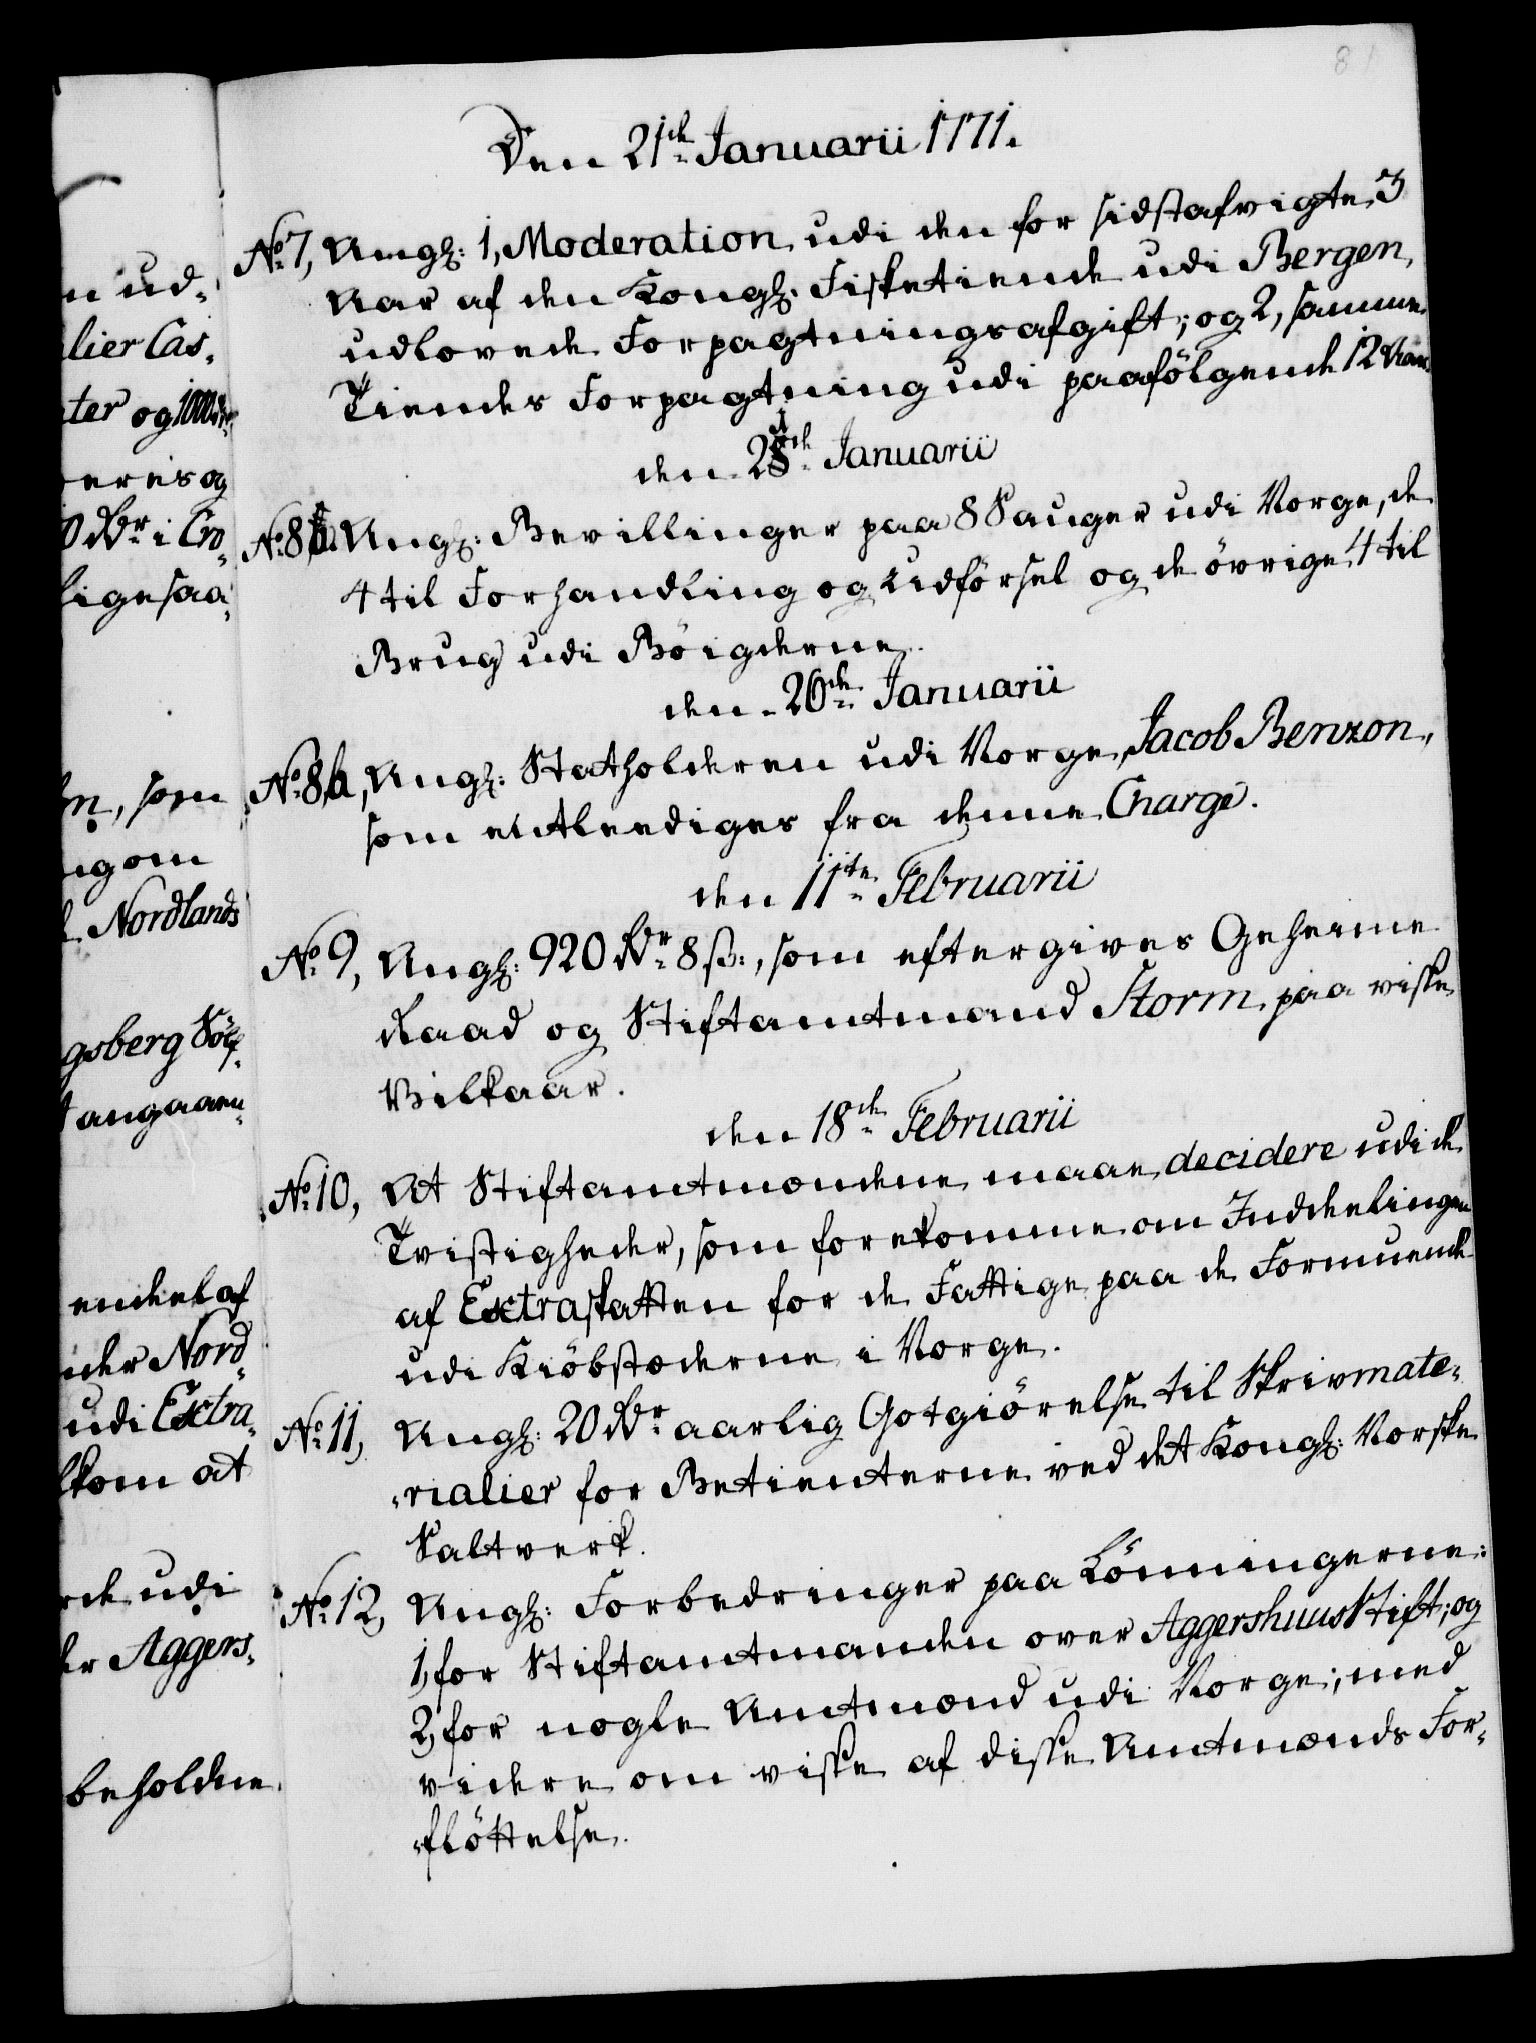 81
Den 21de Januarii 1771.
No 7, Angl: 1, Moderation udi den for sidstafvigte 3
Aar af den Kongl. Fisketiende udi Bergen,
udlovede Forpagtningsafgift; og 2, samme
Tiendes Forpagtning udi paafölgende 12 Aar.
den 28de Januarii
No 8 b. Angl: Bevillinger paa 8 Sauger udi Norge, de
4 til Forhandling og Udförsel og de övrige 4 til
Brug udi Böigderne.
den 26de Januarii
No 8, a, Angl: Statholderen udi Norge, Jacob Benzon,
som entlediges fra denne Charge.
den 11te Februarii
No 9, Angl: 920 Rdr 8 ß:, som eftergives Geheime
Raad og Stiftamtmand Storm paa visse
Vilkaar.
den 18de Februarii
No 10, At Stiftamtmændene maae decidere udi de
Tvistigheder, som forekomme om Inddelingen
af Extraskatten for de Fattige paa de Formuende
udi Kiöbstæderne i Norge.
No 11, Angl: 20 Rdr aarlig Gotgiörelse til Skrivmate-
rialier for Betienterne ved det Kongl: Norske
Saltverk.
No 12, Angl: Forbedringer paa Lönningerne:
1, for Stiftamtmanden over Aggershuus Stift; og
2, for nogle Amtmænd udi Norge; med
videre om visse af disse Amtmænds For-
flöttelse.
n ud-
lier Cas-
ter og 1000 Rdr
eeris og
0 Rdr i Cro-
ligesaa
n, som
ngom
Nordlands
gsberg Sölf-
angaaen-
endel af
nder Nord-
udi Extra-
kom at
rde udi
er Aggers-
beholdne